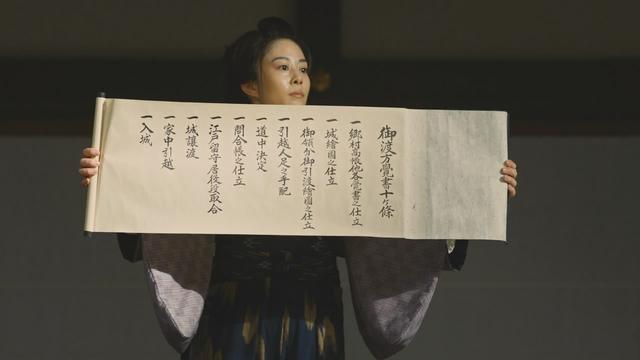 御渡方覺書十ケ條
一郷村高帳他各覚書之仕立
一城繪図之仕立
一御領分御引渡繪図之仕立
一引越人足之手配
一道中決定
一問合帳之仕立
一江戸留守居役投取合
一城譲渡
一家中引越
一入城